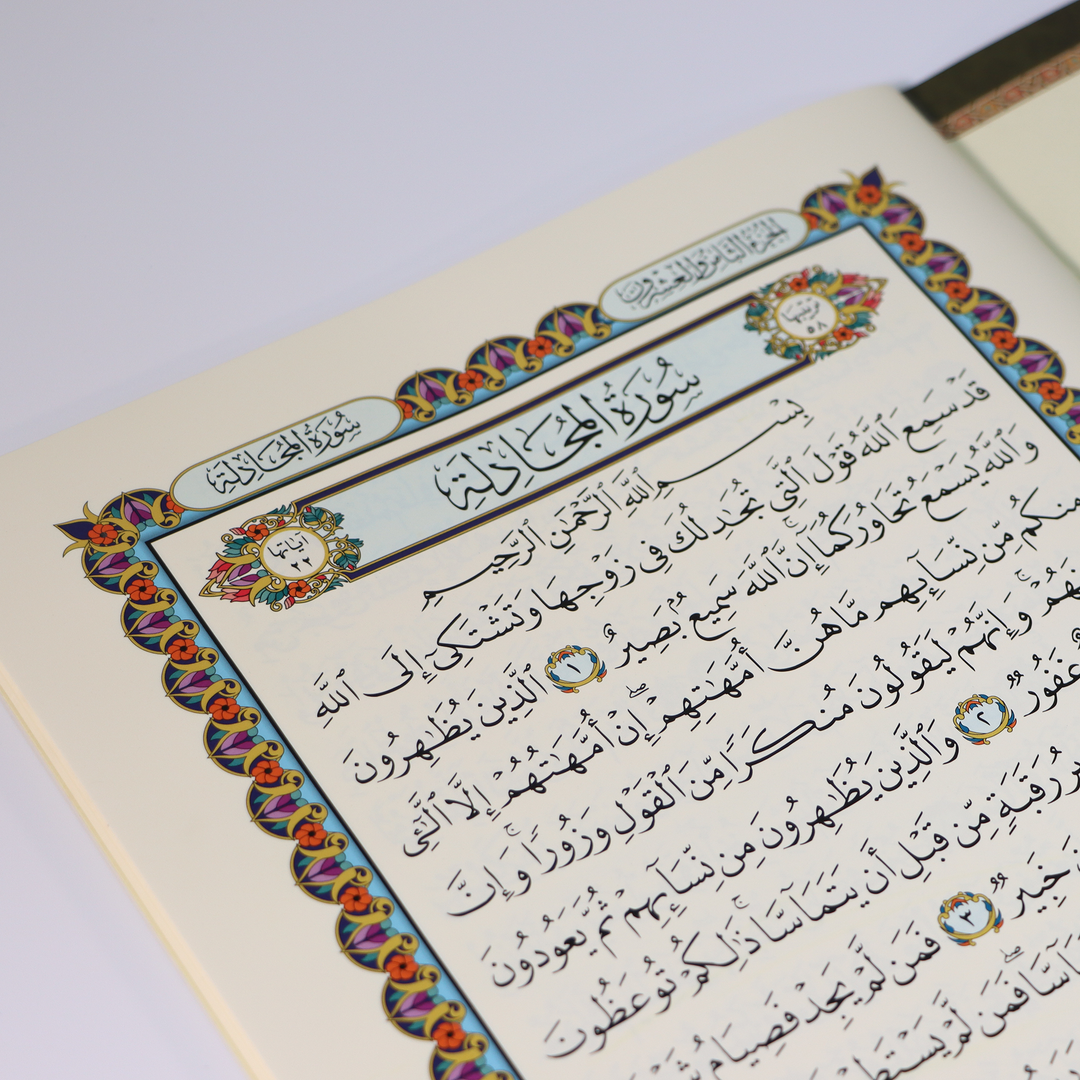 الجزء الثامن والعشرون
سُورَةُ المُجَادلَة
ترتيبها ٥٨
سُورَةُ المُجَادِلَةِ
آياتها ٢٢
بِسْمِ ٱللَّهِ ٱلرَّحْمَٰنِ ٱلرَّحِيمِ
قَدْ سَمِعَ ٱللَّهُ قَوْلَ ٱلَّتِى تُجَٰدِلُكَ فِى زَوْجِهَا وَتَشْتَكِىٓ إِلَى ٱللَّهِ
وَٱللَّهُ يَسْمَعُ تَحَاوُرَكُمَآ ۚ إِنَّ ٱللَّهَ سَمِيعٌۢ بَصِيرٌ ١ ٱلَّذِينَ يُظَٰهِرُونَ
مِنكُم مِّن نِّسَآئِهِم مَّا هُنَّ أُمَّهَٰتِهِمْ ۖ إِنْ أُمَّهَٰتُهُمْ إِلَّا ٱلَّٰٓـِٔى
وَإِنَّهُمْ لَيَقُولُونَ مُنكَرًا مِّنَ ٱلْقَوْلِ وَزُورًا ۚ وَإِنَّ
غَفُورٌ ٢ وَٱلَّذِينَ يُظَٰهِرُونَ مِن نِّسَآئِهِمْ ثُمَّ يَعُودُونَ
رَقَبَةٍ مِّن قَبْلِ أَن يَتَمَآسَّا ۚ ذَٰلِكُمْ تُوعَظُونَ
خَبِيرٌ ٣ فَمَن لَّمْ يَجِدْ فَصِيَامُ
فَمَن لَّمْ